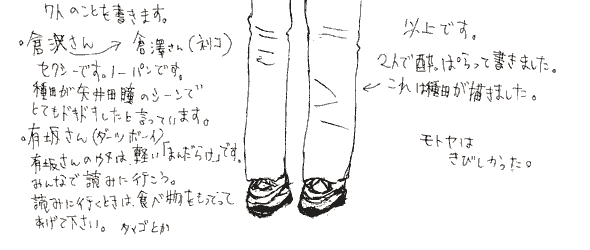 クトのことを書きます。
。倉沢さん → 倉澤さん(ネリコ)
セクシーです。ノーパンです。
種田が矢井田瞳のシーンで
とてもドキドキしたと言っています。
。有坂さん(ダーツボーイ)
有坂さんのウチは、軽い「まんだらけ」です。
みんなで読みに行こう。
読みに行くときは、食べ物をもってって
あげて下さい。 タマゴとか
以上です。
2人で酔っぱらって書きました。
← これは種田が描きました。
モトヤは
きびしかった。